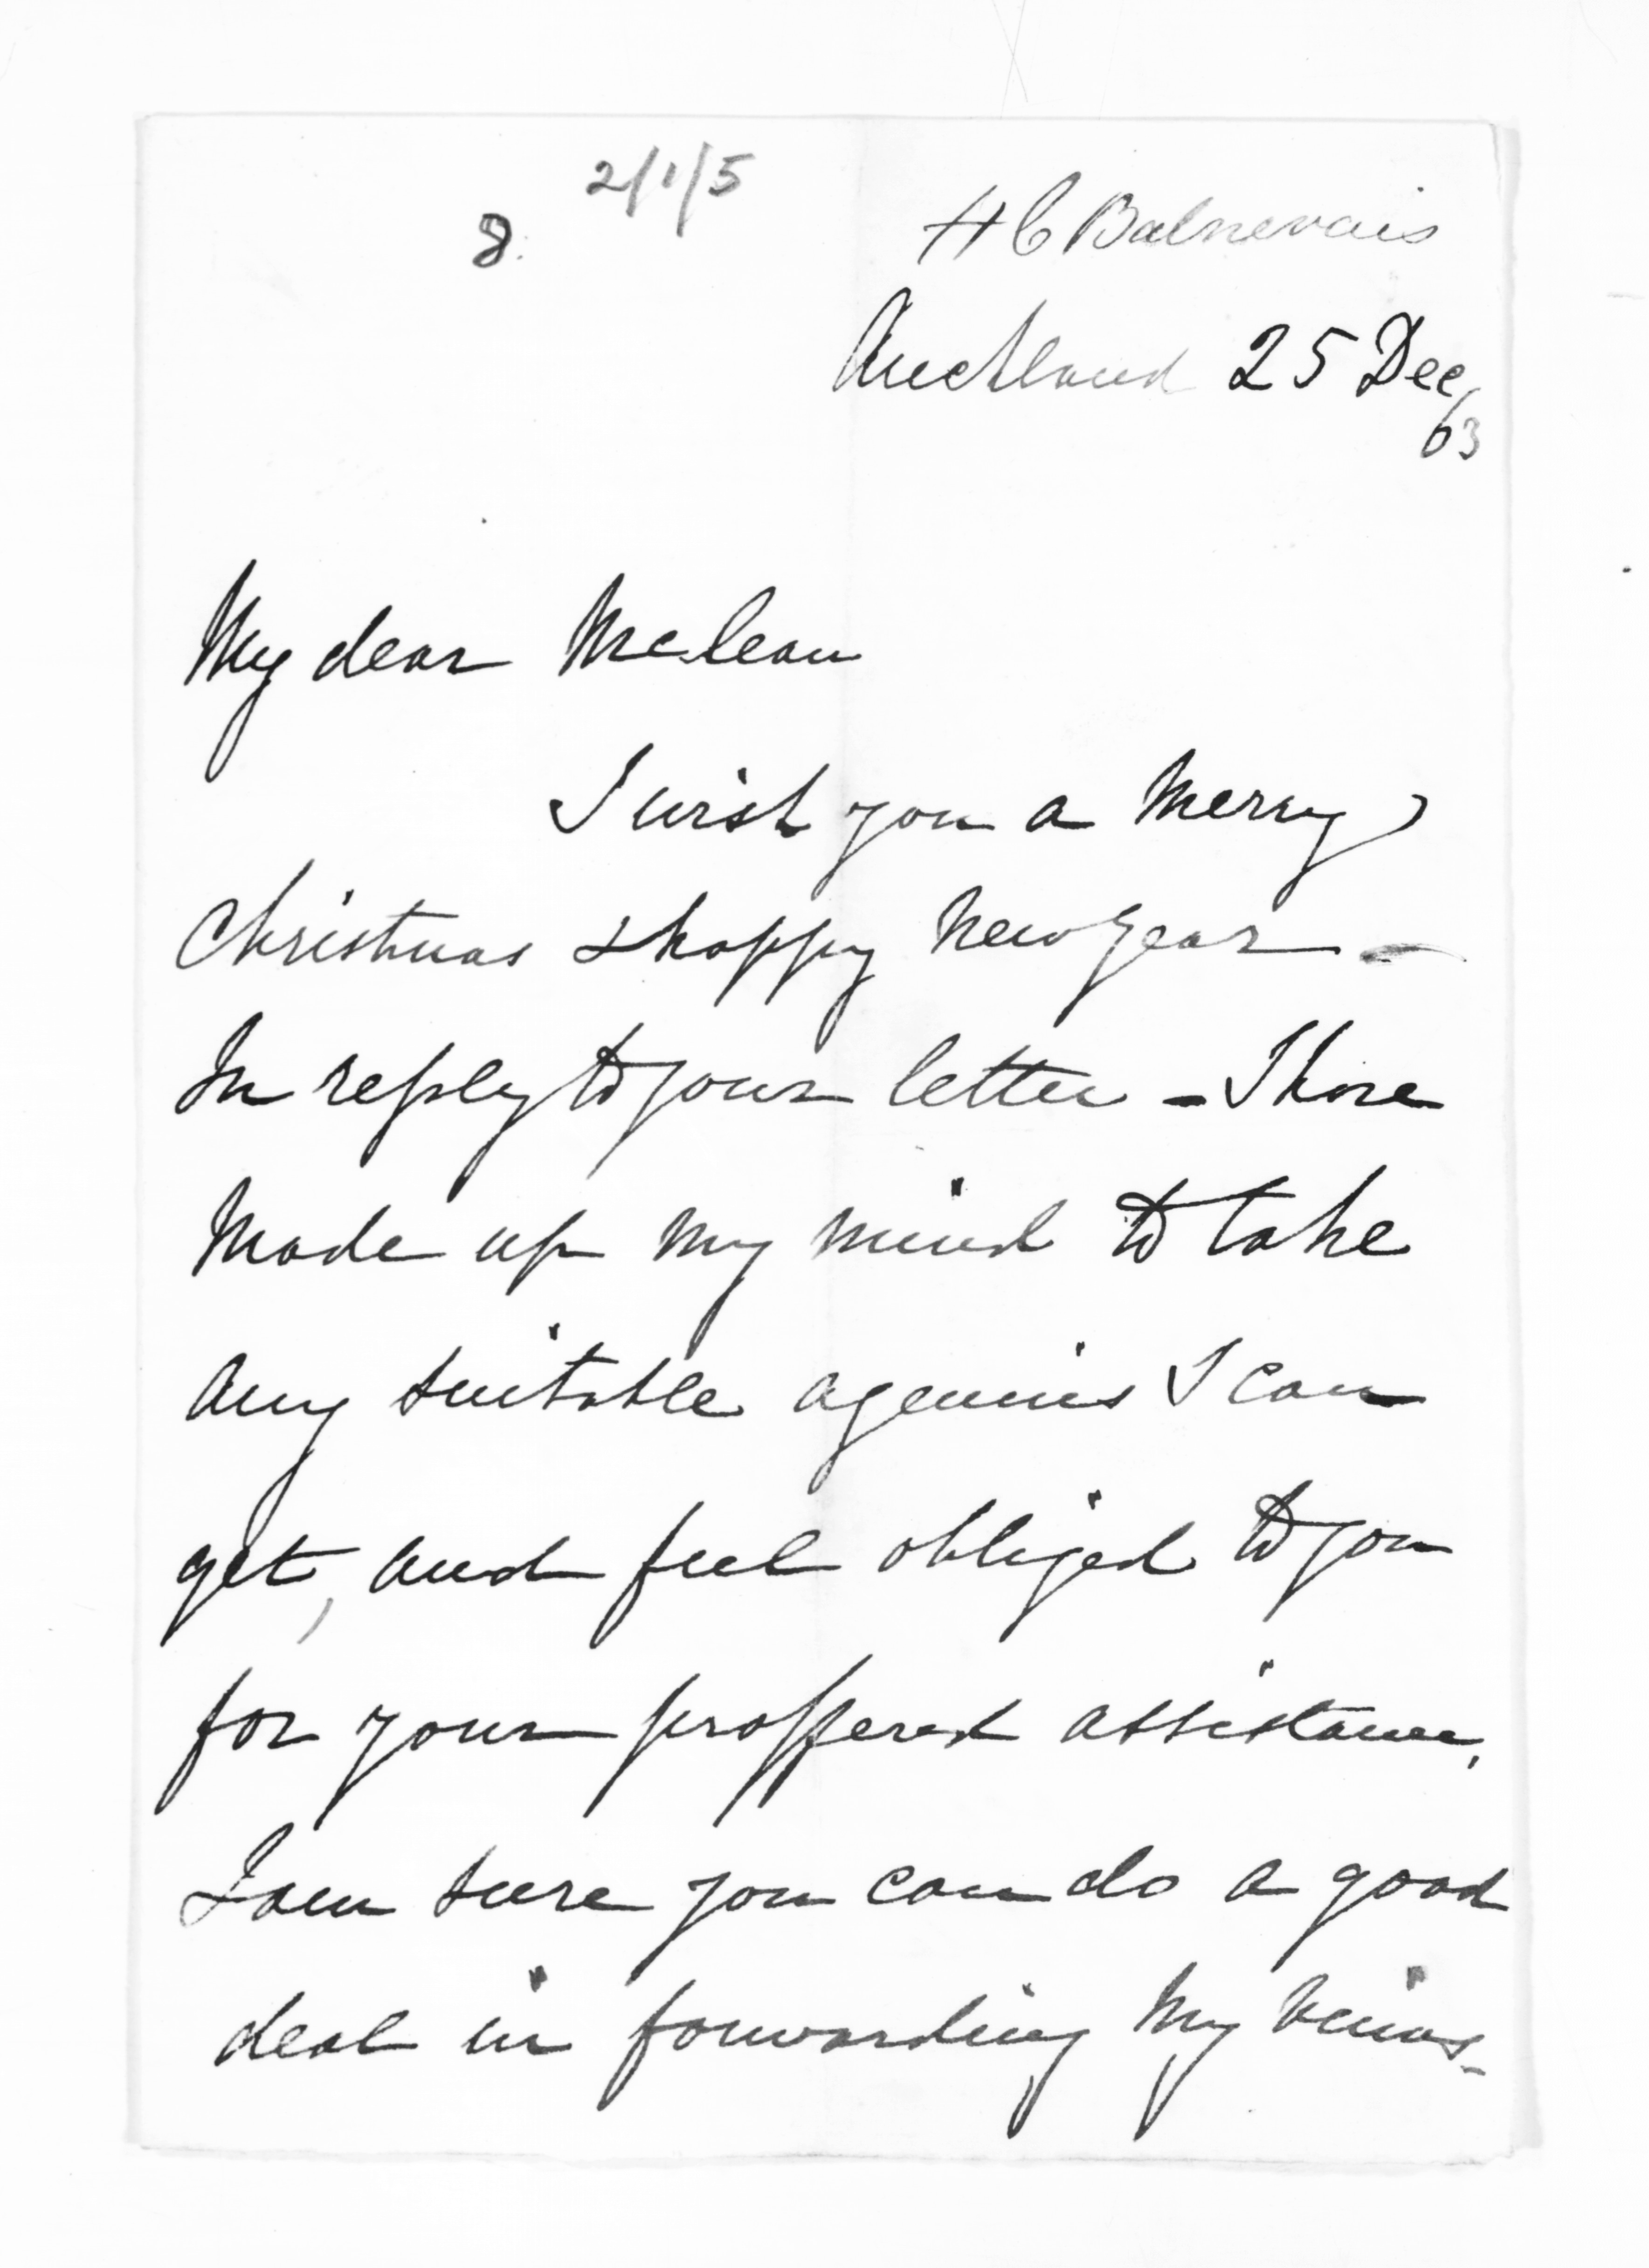 2/1/5
8.
H C Balnevais
Auckland 25 Dec/
63
My dear McLean
I wish you a Merry
Christmas & happy New Year -
In reply to your letter - I have
made up my mind to take
any suitable agencies I can
get, and feel obliged to you
for your proffered assistance,
I am sure you can do a good
deal in forwarding my views -